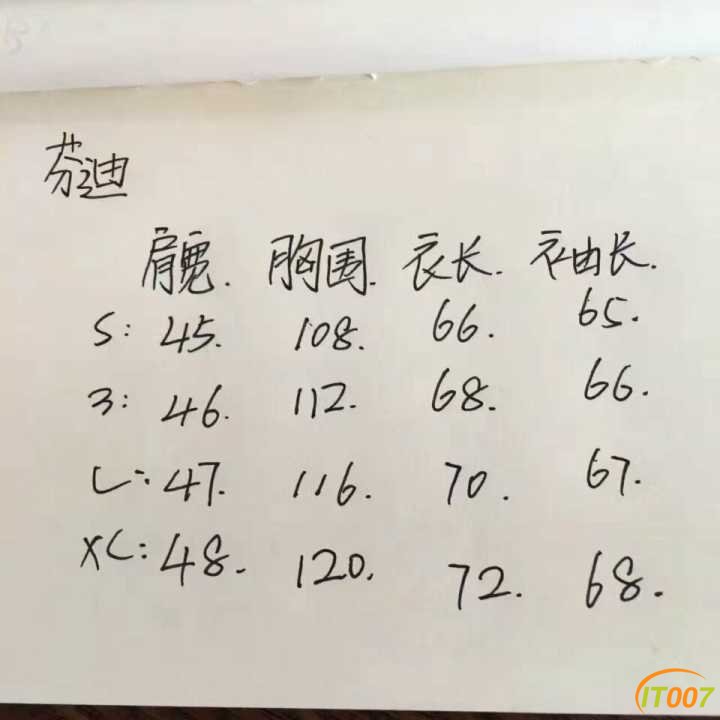 芬迪
肩宽. 胸围. 衣长. 袖长.
S: 45. 108. 66. 65.
3: 46. 112. 68. 66.
L: 47. 116. 70. 67.
XL: 48. 120. 72. 68.
IT007